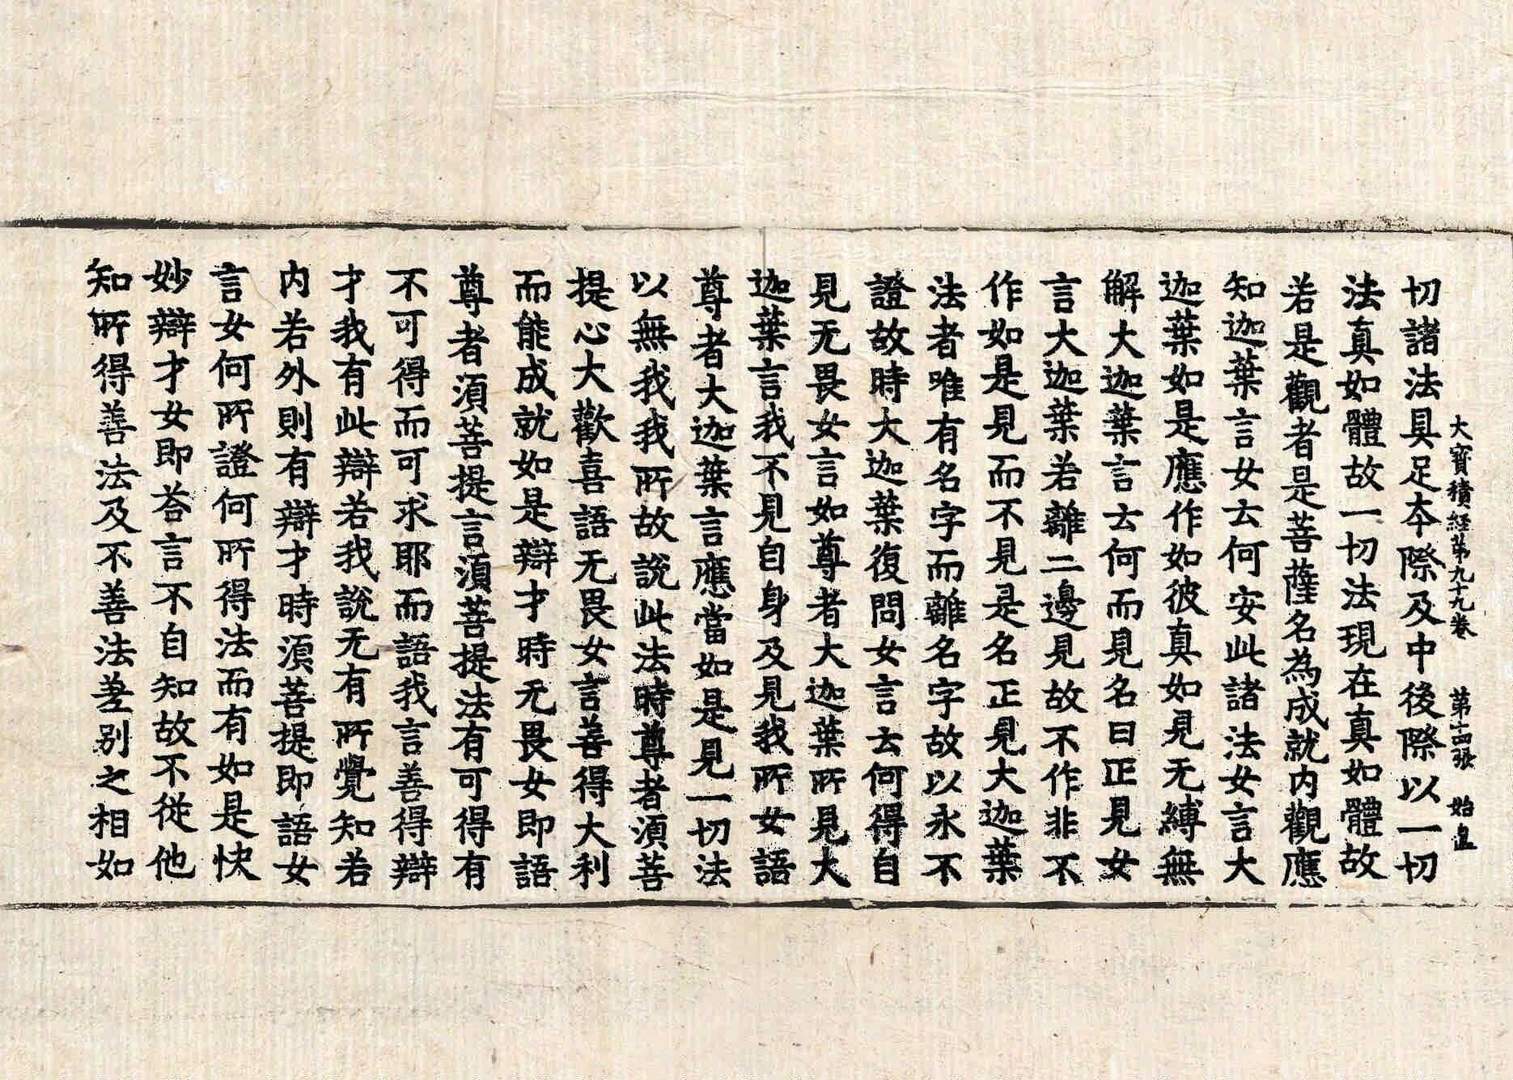 大寶積經第九十九卷 第十四張 始
切諸法具足夲際及中後際以一切
法真如體故一切法現在真如體故
若是觀者是菩薩名為成就内觀應
知迦葉言女云何安此諸法女言大
迦葉如是應作如彼真如見无縛無
解大迦葉言云何而見名曰正見女
言大迦葉若離二邊見故不作非不
作如是見而不見是名正見大迦葉
法者唯有名字而離名字故以永不
證故時大迦葉復問女言云何得自
見无畏女言如尊者大迦葉所見大
迦葉言我不見自身及見我所女語
尊者大迦葉言應當如是見一切法
以無我我所故說此法時尊者須菩
提心大歡喜語无畏女言善得大利
而能成就如是辯才時无畏女即語
尊者須菩提言須菩提法有可得有
不可得而可求耶而語我言善得辯
才我有此辯若我說无有所覺知若
内若外則有辯才時須菩提即語女
言女何所證何所得法而有如是快
妙辯才女即荅言不自知故不從他
知所得善法及不善法差别之相如